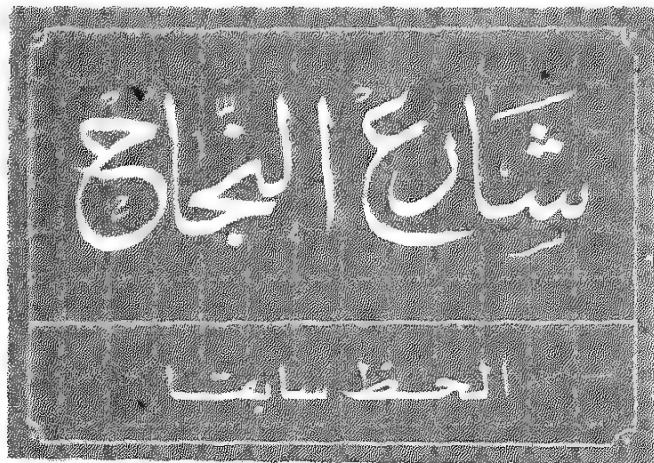 شَارِعُ النّجَاحْ
الحظ سابقا